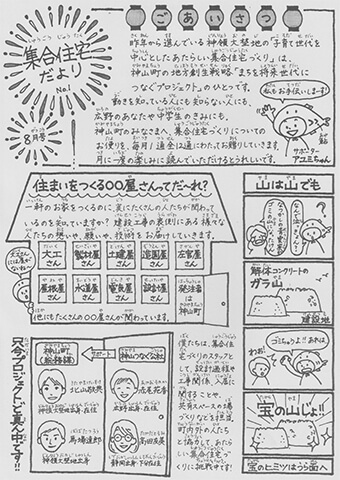 集合住宅
だより
No.1
8月号
ごあいさつ
昨年から進んでいる神領大埜地の「子育て世代を
中心としたあたらしい集合住宅づくり」は、
神山町の地方創生戦略「まちを将来世代に
つなぐプロジェクト」のひとつです。
動きを知っている人にも知らない人にも、
広野のあなたや中学生のきみにも。
神山町のみなさまへ、集合住宅づくりについての
お便りを、毎月1通全は通にわたりお贈りしていきます。
月に一度の楽しみに読んでいただけるとうれしいです。
私もお手伝いします!
サポーター
アユミちゃん
住まいをつくる〇〇屋さんってだ〜れ?
一軒のお家をつくるのに、実にたくさんの人たちが関わって
いるのを知っていますか?建設工事の裏側にある様々な
人たちの想いや、願いや、技術をお届けしていきます。
大工さん
製材屋さん
土建屋さん
造園屋さん
左官屋さん
屋根屋さん
水道屋さん
電気屋さん
設計屋さん
発注者は
神山町
他にもたくさんの〇〇屋さんが関わっています。
山は山でも
解体コンクリートの
ガラ山
建設地
わお!
宝の山じょ!!
宝のヒミツはうら面へ
只今プロジェクトのど真ん中です!!
神山町
(総務課)
サポート
神山つなぐ公社
北山敬典
神領大埜地出身・在住
馬場達郎
神領大埜地出身
赤尾苑香
広野出身・在住
高田友美
静岡出身・下分在住
僕たちは、集合住
宅づくりのスタッフと
して、設計過程や
工事関係、入居に
関することや、
共有スペースの場
づくりなどを担当。
町内外の人たち
と協力して、あたら
しい集合住宅づ
くりに挑戦中です!